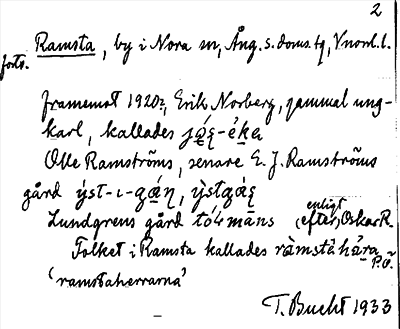 2
forts. Ramsta, by i Nora sn, Ång. s. doms. tg, Vnorrl. l.
framemot 1920:, Erik Norberg, gammal ung-
karl, kallades
Olle Ramströms, senare E. J. Ramströms
gård yst-ı-gą́η, ỳstgą́ę
Lundgrens gård tómāns (enligt
efter) Oskar R.
Folket i Ramsta kallades ràmstahą̀ra
P.Ö.
'ramstaherrarna'
T. Bucht 1933